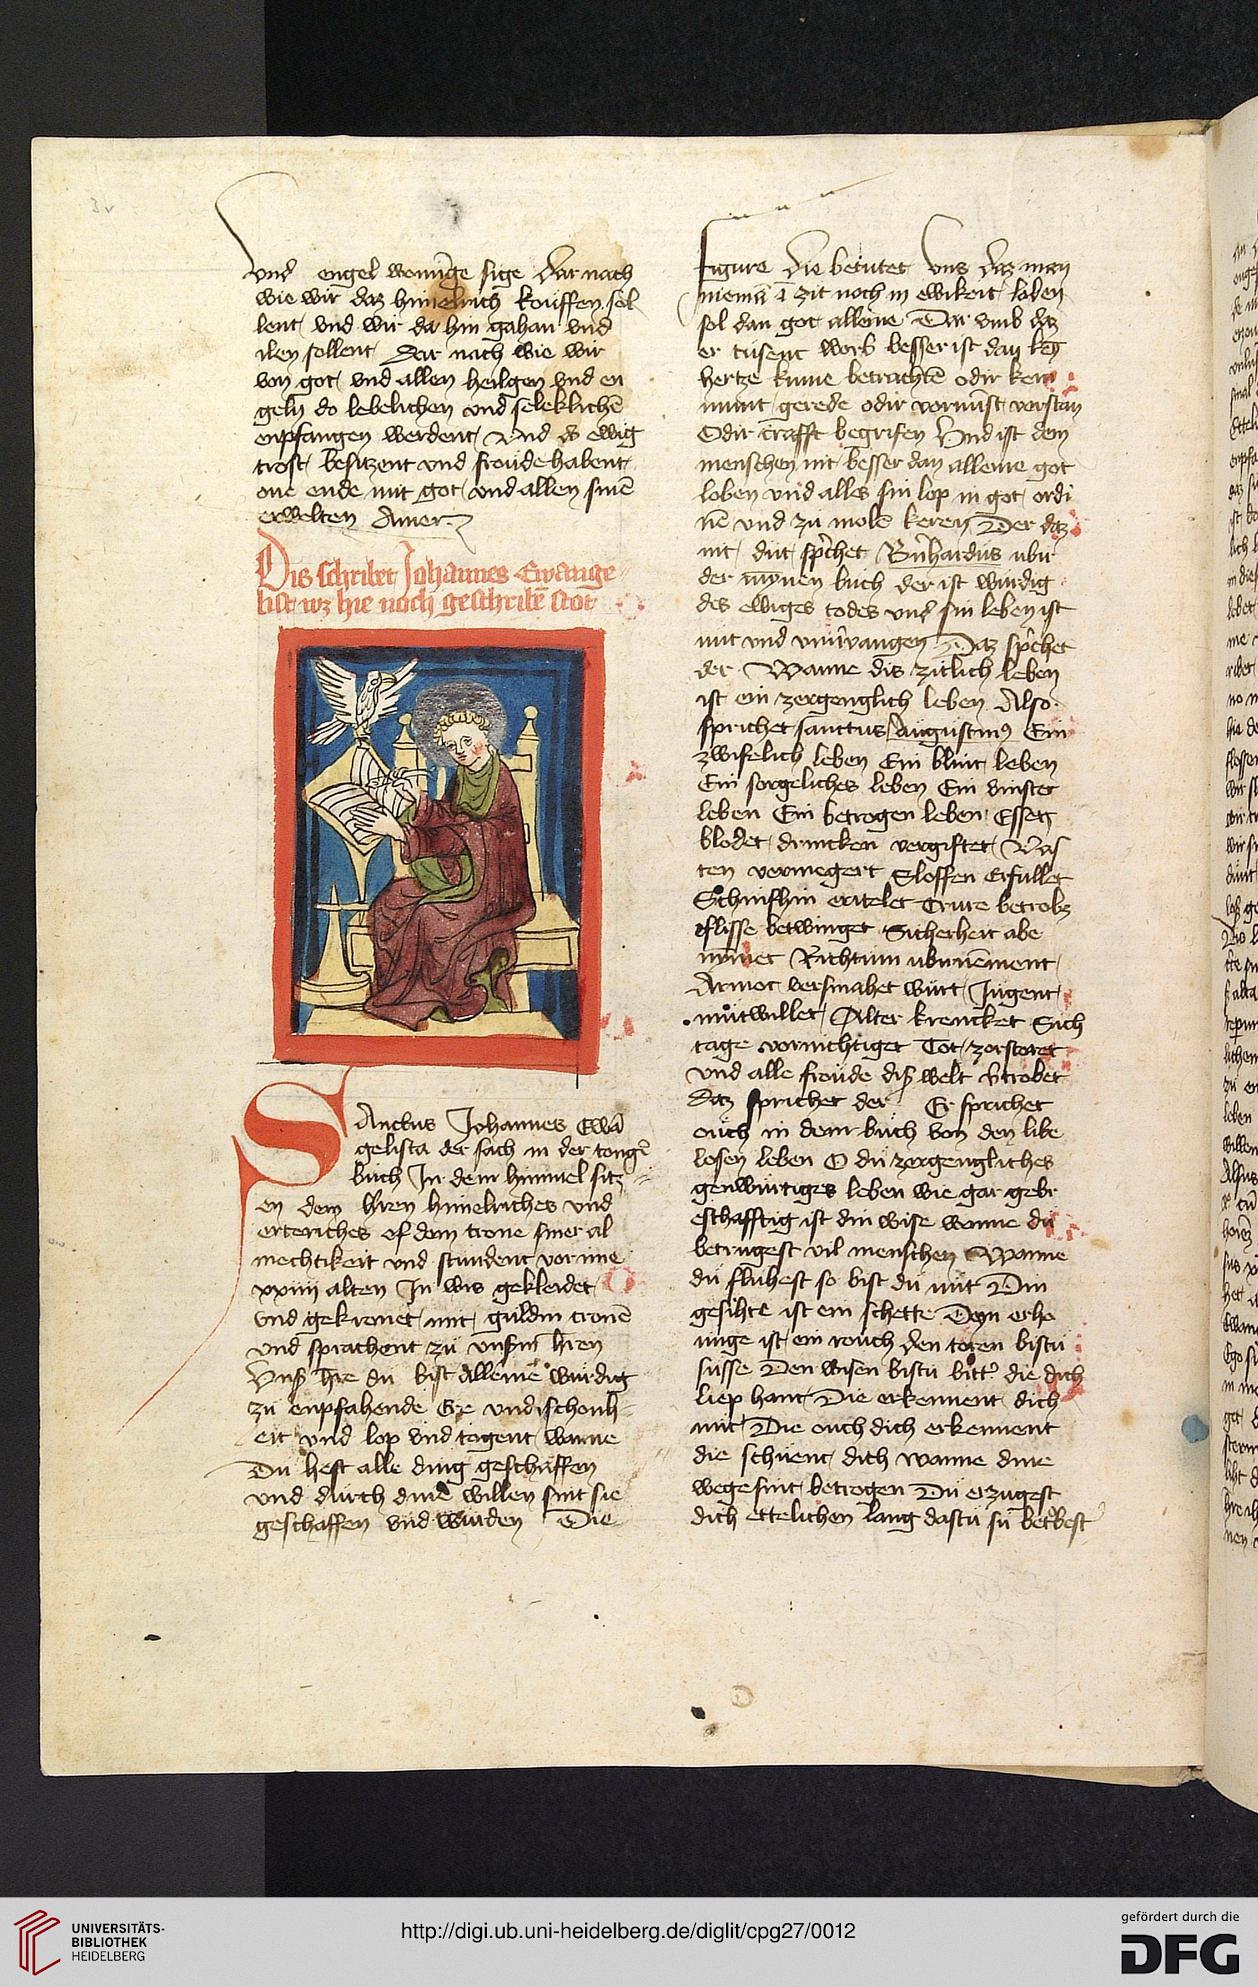 3v
vnd engel wonunge sige Dar nach
wie wir daz himelrich kouffen sol
lent vnd wir da hin gahan vnd
ilen sollent Dar nach wie wir
von got vnd allen heilgen vnd en
geln do lebelichen vnd seleklichē
enpfangen werdent Vnd ewig
trost besitzent vnd froude habent
one ende mit got vnd allen sinē
erwelten Amen
Dis schribet Johannes Ewange
list wz hie noch geschribē stot
SAnctus Johannes Ewā
gelista der sach in der tougē
buch In dem himmel sitz
en dem hīren himelriches vnd
erteriches of dem trone siner al
mechtikeit vnd stundent vor ime
xxiiii alten In wis gekleidet
vnd gekronet mit guldin cronē
vnd sprachent zu vnsm hīren
Vnser hīre du bist alleine wurdig
zu enpfahende Ere vnd schonh
eit vnd lop vnd togent wanne
Du hest alle ding geschaffen
vnd durch dinē willen sint sie
geschaffen vnd wurden Die
figure Die betutet vns daz man
niemā ī zit noch in ewikeit loben
sol dan got alleine Dar vmb daz
er tusent besser ist dan kein
hertze kunne betrachtē odir kein
munt gerede odir vornunst vorstan
Odir crafft begrifen Vnd ist dem
menschen nit besser dan alleine got
loben vnd alles sin lop in got ordi
nē vnd zu molē keren Der daz
nit dut sprichet Bernhardus ubir
der mynnen buch der ist wurdig
des ewiges todes vnd sin leben ist
nut vnd Daz sprichet
der Wanne dis zitlich leben
ist ein zergenglich leben Also
sprichet sanctus Augustinus Ein
zwifelich leben Ein blint leben
Ein sorgeliches leben Ein vinster
leben Ein betrogen leben Essen
blodet drincken vergiftet Vas
ten vermegert Sloffen erfullet
Schinshin eritelet Trure betrobz
flisse betwinget Sicherheit abe
nymet Richtum ubirnēment
Armot versmahet wurt Jugent
mutwillet Alter krencket Sich
tage vornichtiget Tot zerstoret
vnd alle froude diser welt betrobet
Daz sprichet der Er sprichet
ouch in dem buch von den libe
losen leben O du zergengliches
genwurtiges leben wie gar gebr
eschafftig ist din wise wanne du
betrugest vil menschen Wanne
du fluhest so bist du nut Din
gesihte ist ein schette Din erho
unge ist ein rouch den toren bistu
susse Den wisen bistu bitter die dich
liep hant Die erkennent dich
nut Die ouch dich erkennent
die schuent dich wanne dine
wege sint betrogen Du erzugest
dich ettelichen lang dastu su betrubest
UNIVERSITÄTS-
BIBLIOTHEK
HEIDELBERG
http://digi.ub.uni-heidelberg.de/diglit/cpg27/0012
gefördert durch die
DFG